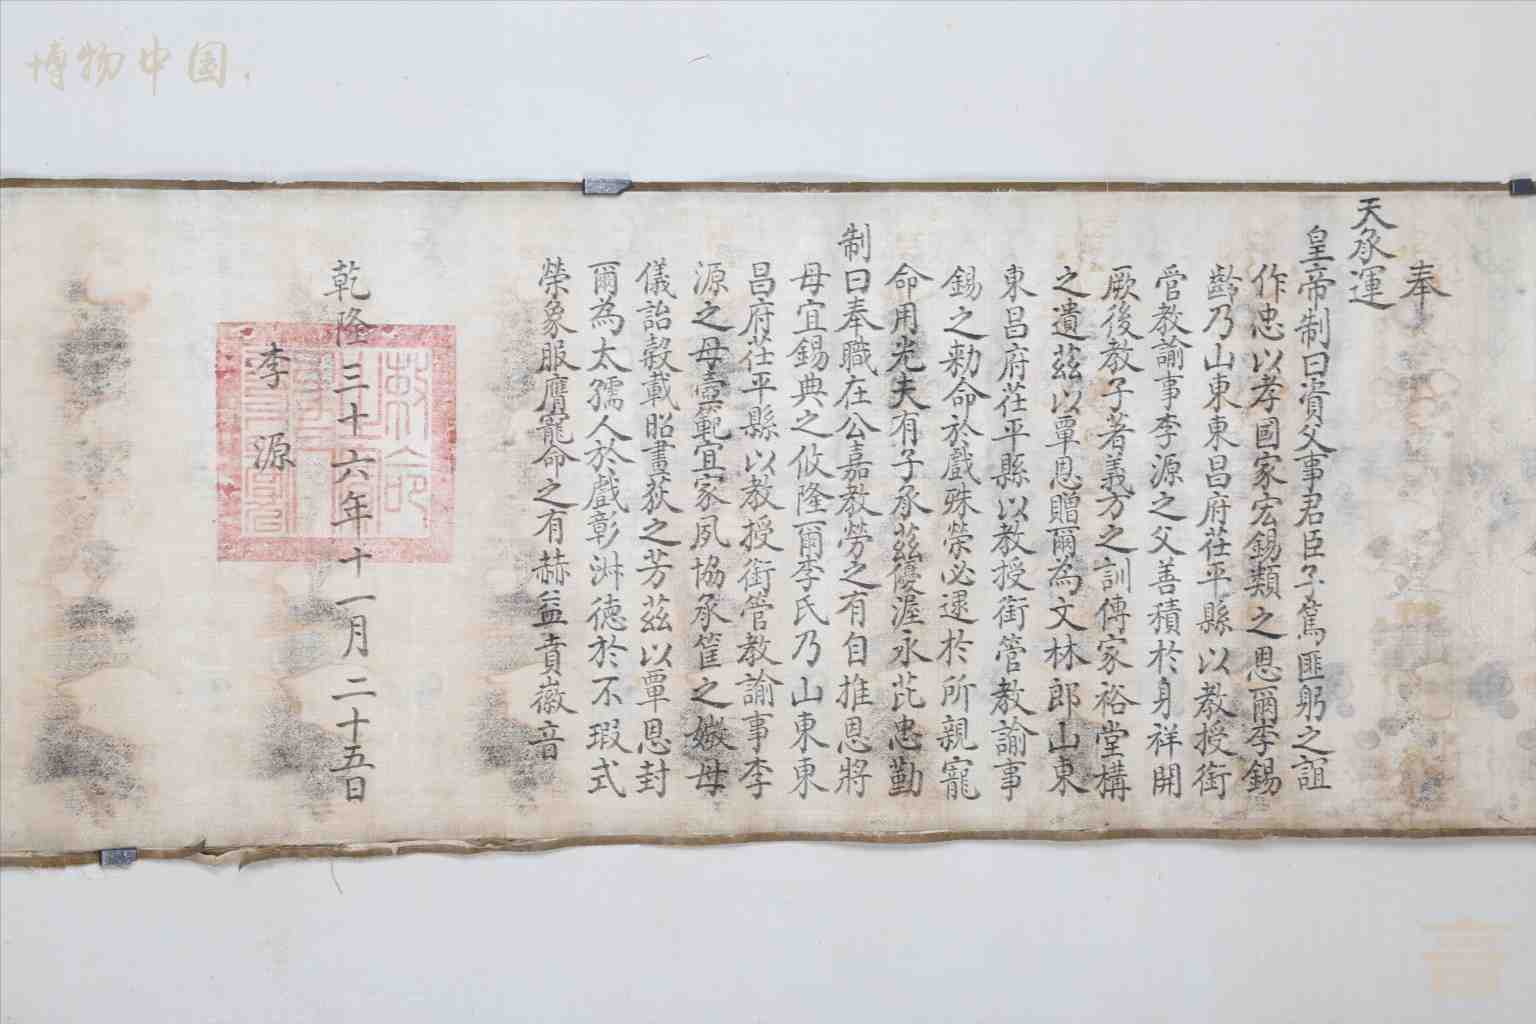 博物中国
奉
天承運
皇帝制曰資父事君臣子篤匪躬之誼
作忠以孝國家宏錫類之恩爾李錫
齡乃山東東昌府茌平縣以教授銜
管教諭事李源之父善積於身祥開
厥後教子著義方之訓傳家裕堂構
之遺茲以覃恩贈爾為文林郎山東
東昌府茌平縣以教授銜管教諭事
錫之勅命於戲殊榮必逮於所親寵
命用光夫有子承茲優渥永芘忠勤
制曰奉職在公嘉教勞之有自推恩將
母宜錫典之攸隆爾李氏乃山東東
昌府茌平縣以教授銜管教諭事李
源之母壼範宜家夙協承筐之媺母
儀詒穀載昭畫荻之芳茲以覃恩封
爾為太孺人於戲彰淑德於不瑕式
榮象服膺寵命之有赫益賁徽音
乾隆三十六年十一月二十五日
李源
敕命之寶